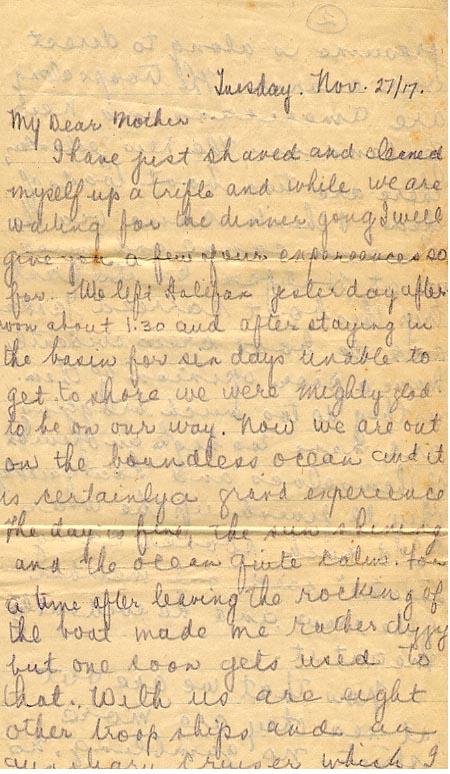 2
Tuesday. Nov. 27/17.
My Dear Mother
I have just shaved and cleaned
myself up a trifle and while we are
waiting for the dinner gong I will
give you a few of our experiences so
far. We left Halifax yesterday after
noon about 1:30 and after staying in
the basin for six days unable to
get to shore we were mighty glad
to be on our way. Now we are out
on the boundless ocean and it
is certainly a grand experience
The day is fine, the sun shining
and the ocean quite calm. For
a time after leaving the rocking of
the boat made me rather dizzy
but one soon gets used to
that. With us are eight
other troop ships and an
auxiliary cruiser which I